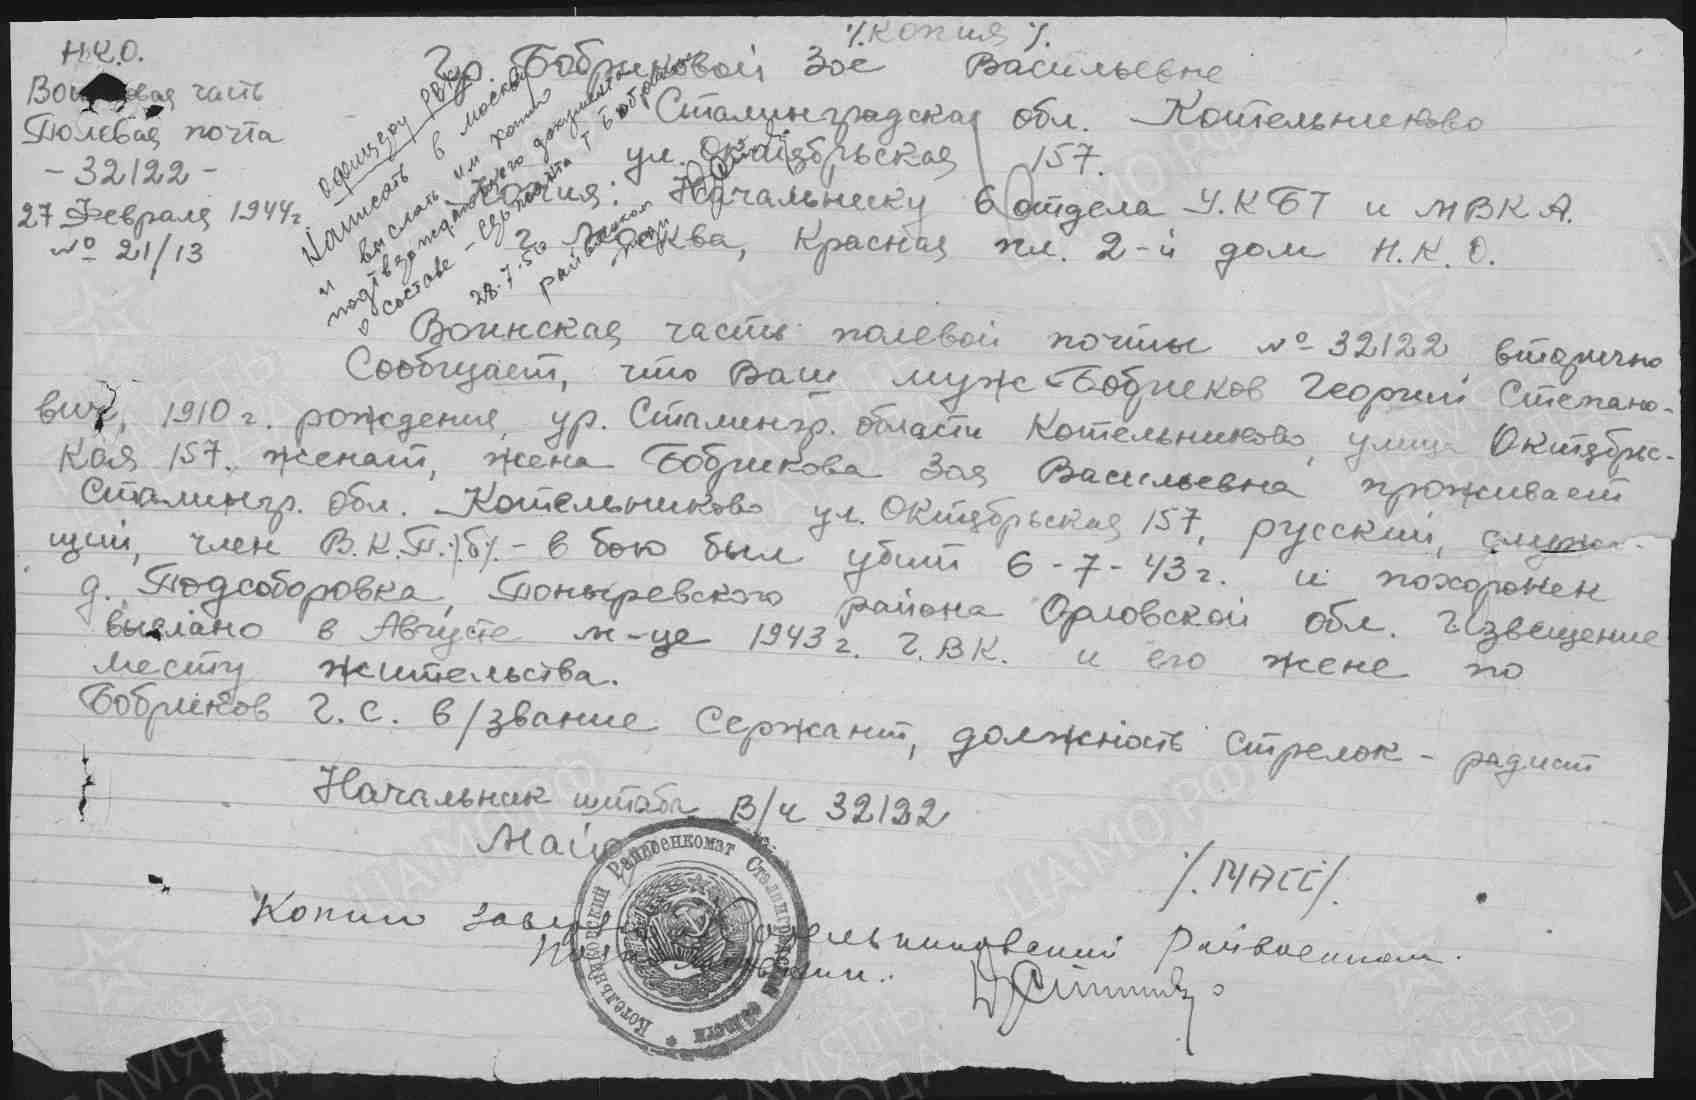 /.Копия/.
Н.К.О.
Воинская часть
Полевая почта
- 32122 -
27 Февраля 1944 г
№ 21/13
Гр. Бобриковой Зое Васильевне
Сталинградская обл. Котельниково
ул. Октябрьская 157.
Копия: Начальнику 6 отдела У.К БТ и МВ К А.
г. Москва, Красная пл. 2-й дом Н.К.О.
Написать в Москву
и выслать им копию
подтверждающего документа
о составе
28.7.50
Воинская часть полевой почты № 32122 вторично
Сообщает, что Ваш муж Бобриков Георгий Степано-
вич, 1910 г. рождения, ур. Сталингр. области Котельниково, улица Октябрьс-
кая 157. женат, жена Бобрикова Зоя Васильевна проживает
Сталингр. обл. Котельниково ул. Октябрьская 157, русский, служа-
щий, член В.К.П./б/. - в бою был убит 6-7-43 г. и похоронен
д. Подсоборовка, Поныревского района Орловской обл. Извещение
выслано в Августе м-це 1943 г. Г.ВК. и его жене по
месту жительства.
Бобриков Г.С. в/звание Сержант, должность Стрелок - радист
Начальник штаба В/ч 32122
Майор
/.МАСС/.
Копию заверил Котельниковский Райвоенком.
Котельниковский Райвоенкомат Сталинградской области
ЦАМО РФ
ПАМЯТЬ
НАРОДА